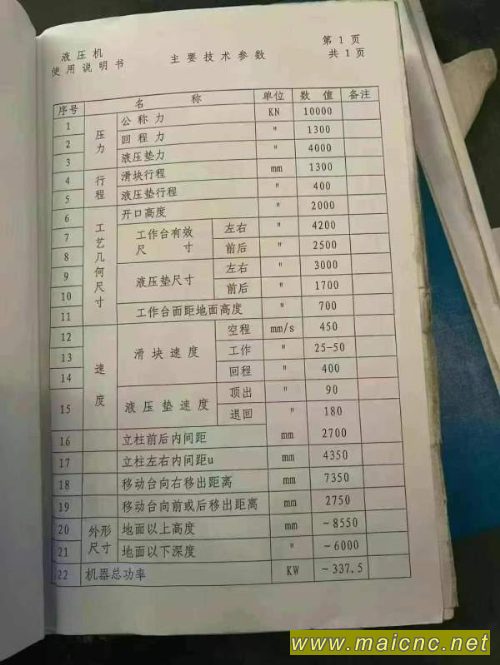 液压机 第 1 页
使用说明书 主要技术参数 共 1 页
序号 名 称 单位 数 值 备注
1 压力 公称力 KN 10000
2 回程力 〃 1300
3 液压垫力 〃 4000
4 行程 滑块行程 mm 1300
5 液压垫行程 〃 400
6 工艺几何尺寸 开口高度 〃 2000
7 工作台有效尺寸 左右 〃 4200
8 前后 〃 2500
9 液压垫尺寸 左右 〃 3000
10 前后 〃 1700
11 工作台面距地面高度 〃 700
12 速度 滑块速度 空程 mm/s 450
13 工作 〃 25-50
14 回程 〃 400
15 液压垫速度 顶出 〃 90
退回 〃 180
16 立柱前后内间距 mm 2700
17 立柱左右内间距u mm 4350
18 移动台向右移出距离 mm 7350
19 移动台向前或后移出距离 mm 2750
20 外形尺寸 地面以上高度 mm ~8550
21 地面以下深度 〃 ~6000
22 机器总功率 KW ~337.5
www.maicnc.net